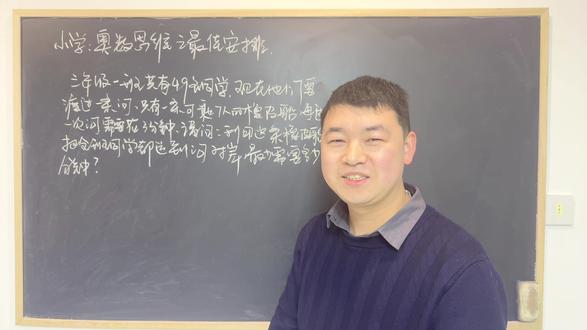 小学:奥数思维之最佳安排.
三年级一班共有49名同学,现在他们要
渡过一条河,只有一条可乘7人的橡皮船,每过
一次河需要3分钟,请问:利用这条橡皮船
把全班同学都运到河对岸,最少需要多少
分钟?